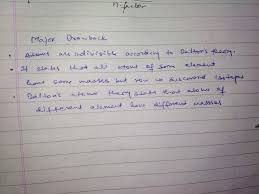 n-factor
Major Drawback
• Atoms are indivisible according to Dalton's theory.
• It states that all atoms of same element
have same masses but now is discoverd isotopes
• Dalton's atomic theory states that atoms of
different element have different masses